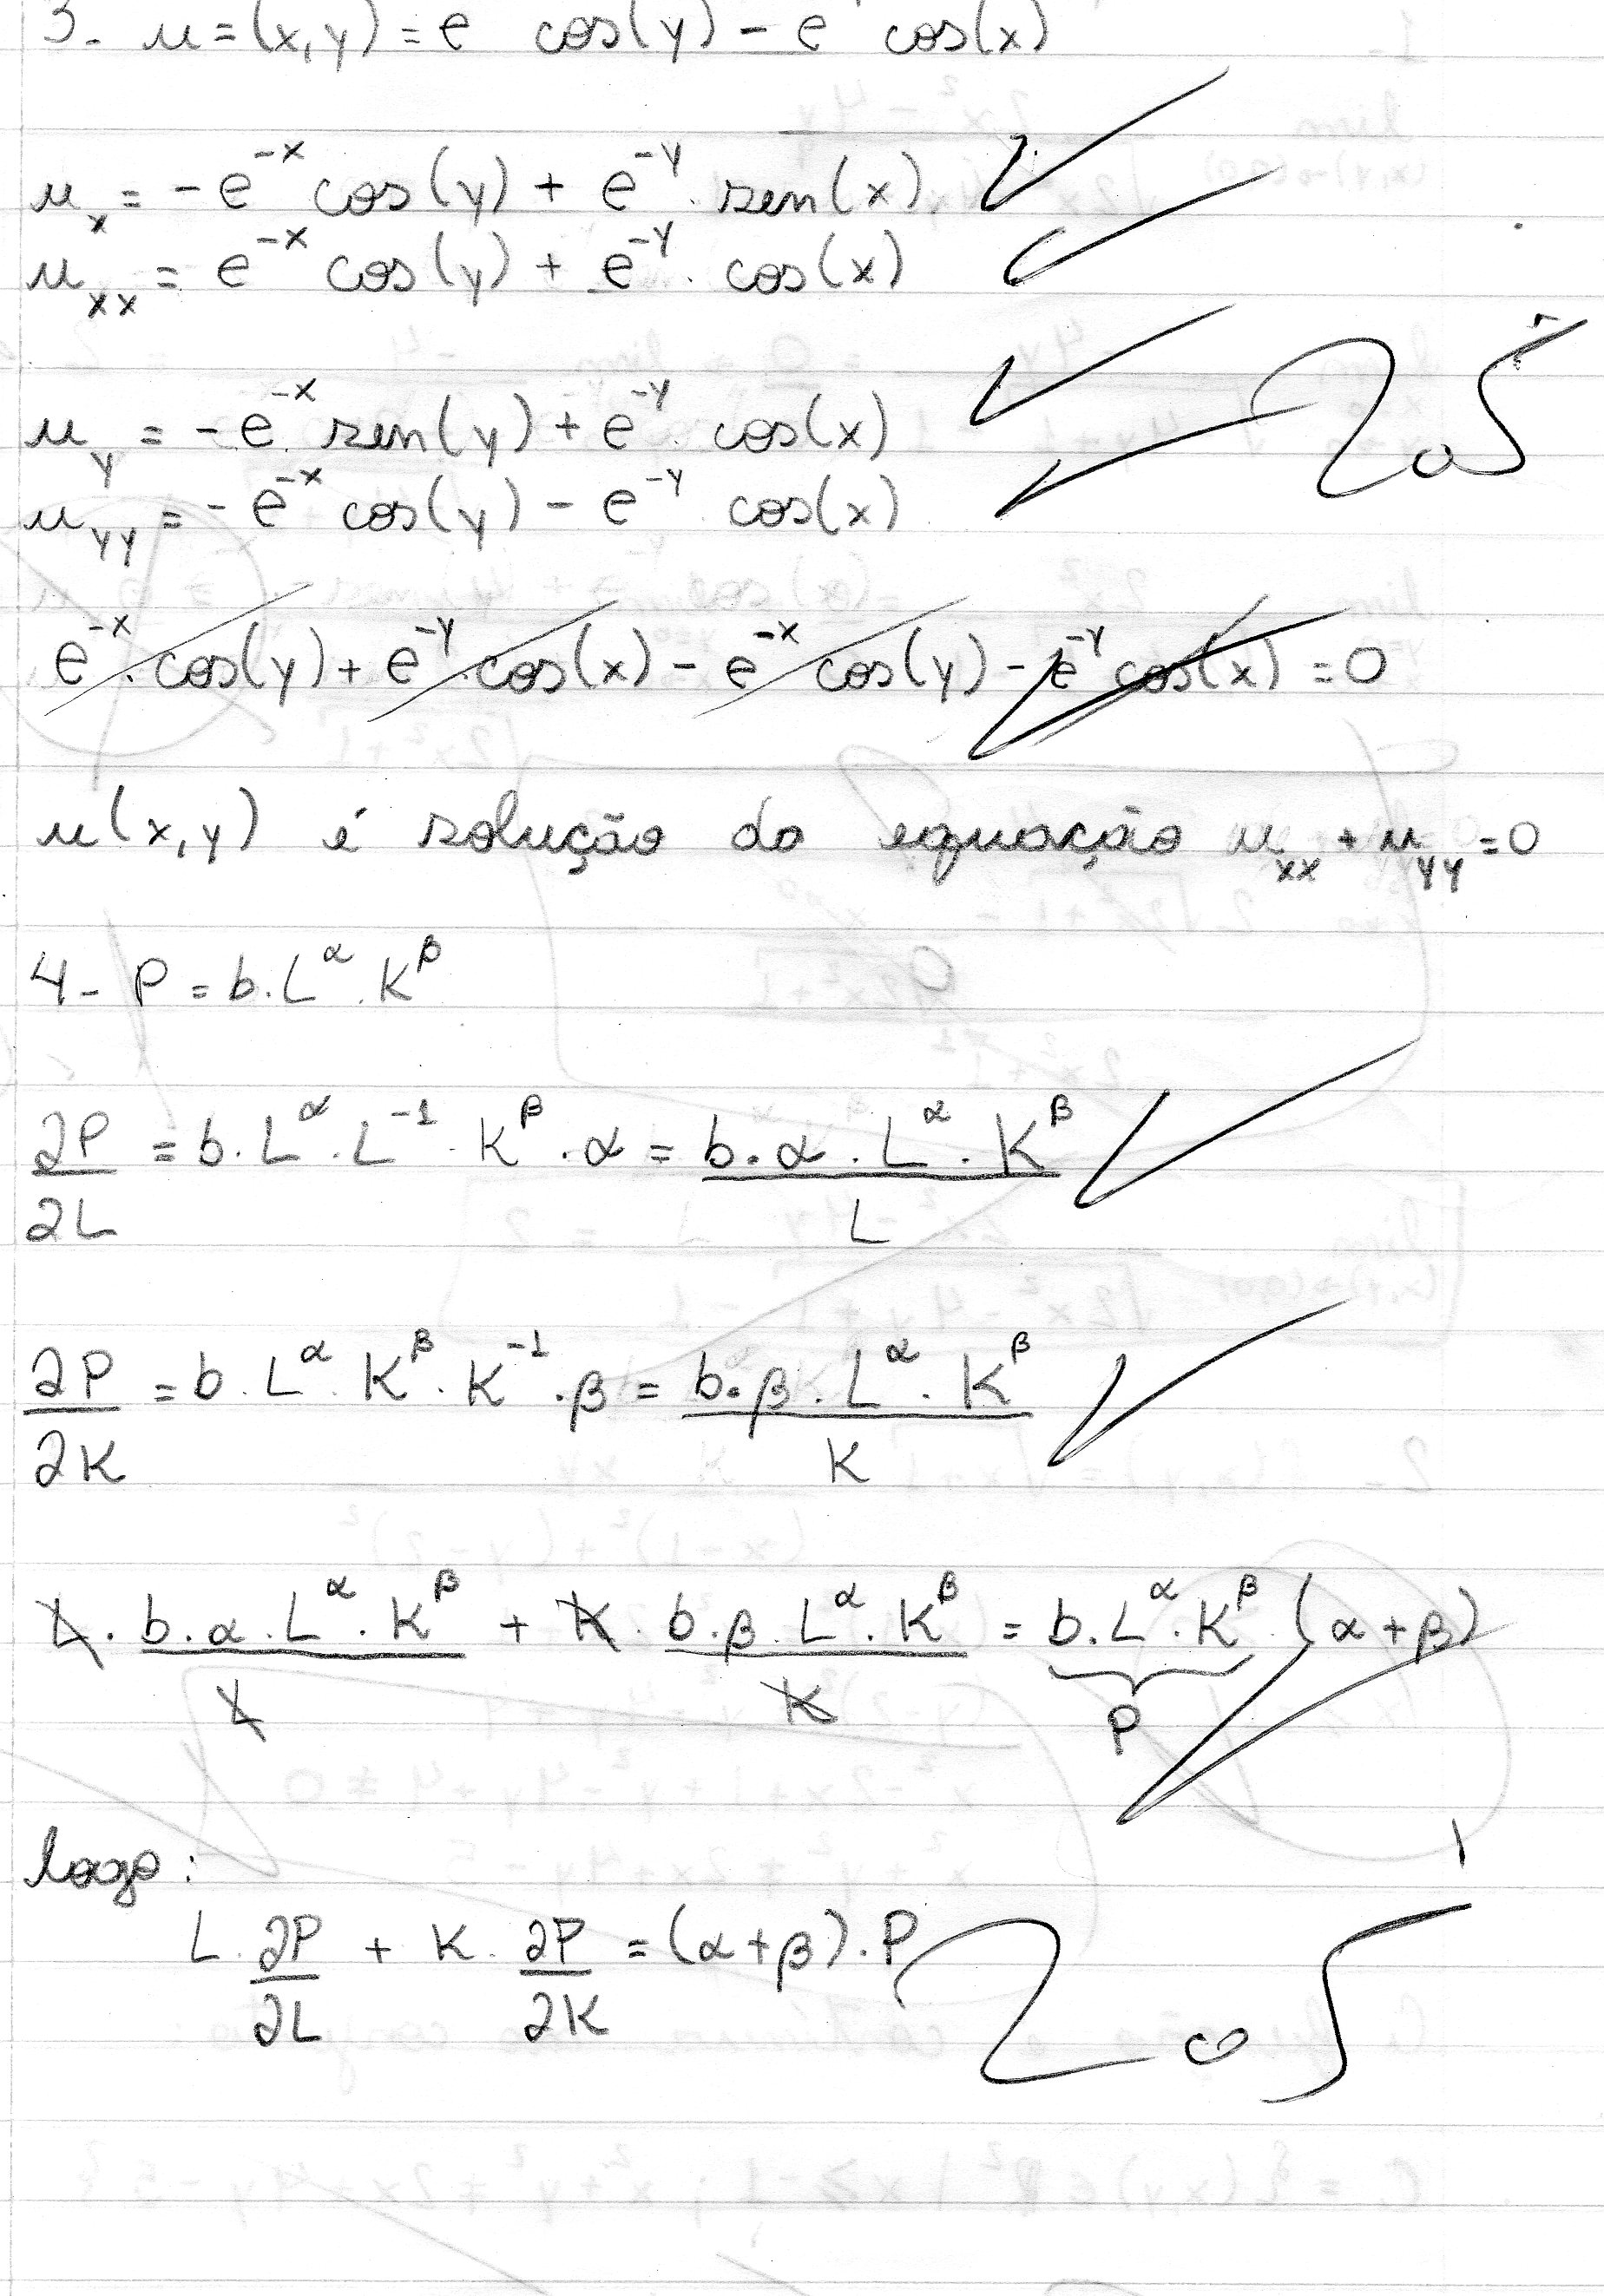 3- u=(x,y)=e cos(y) - e cos(x)
u_x = -e^{-x} cos(y) + e^{-y} . sen(x)
u_{xx} = e^{-x} cos(y) + e^{-y} . cos(x)
u_y = -e^{-x} sen(y) + e^{-y} . cos(x)
u_{yy} = -e^{-x} cos(y) - e^{-y} cos(x)
2,5
e^{-x} . cos(y) + e^{-y} . cos(x) - e^{-x} cos(y) - e^{-y} cos(x) = 0
u(x,y) é solução da equação u_{xx} + u_{yy} = 0
4- P = b.L^α . K^β
∂P/∂L = b.L^α . L^{-1} . K^β . α = b.α.L^α . K^β / L
∂P/∂K = b.L^α . K^β . K^{-1} . β = b.β.L^α . K^β / K
L . b.α.L^α . K^β / L + K . b.β.L^α . K^β / K = b.L^α . K^β (α+β)
P
logo:
L . ∂P/∂L + K . ∂P/∂K = (α+β).P
2,5